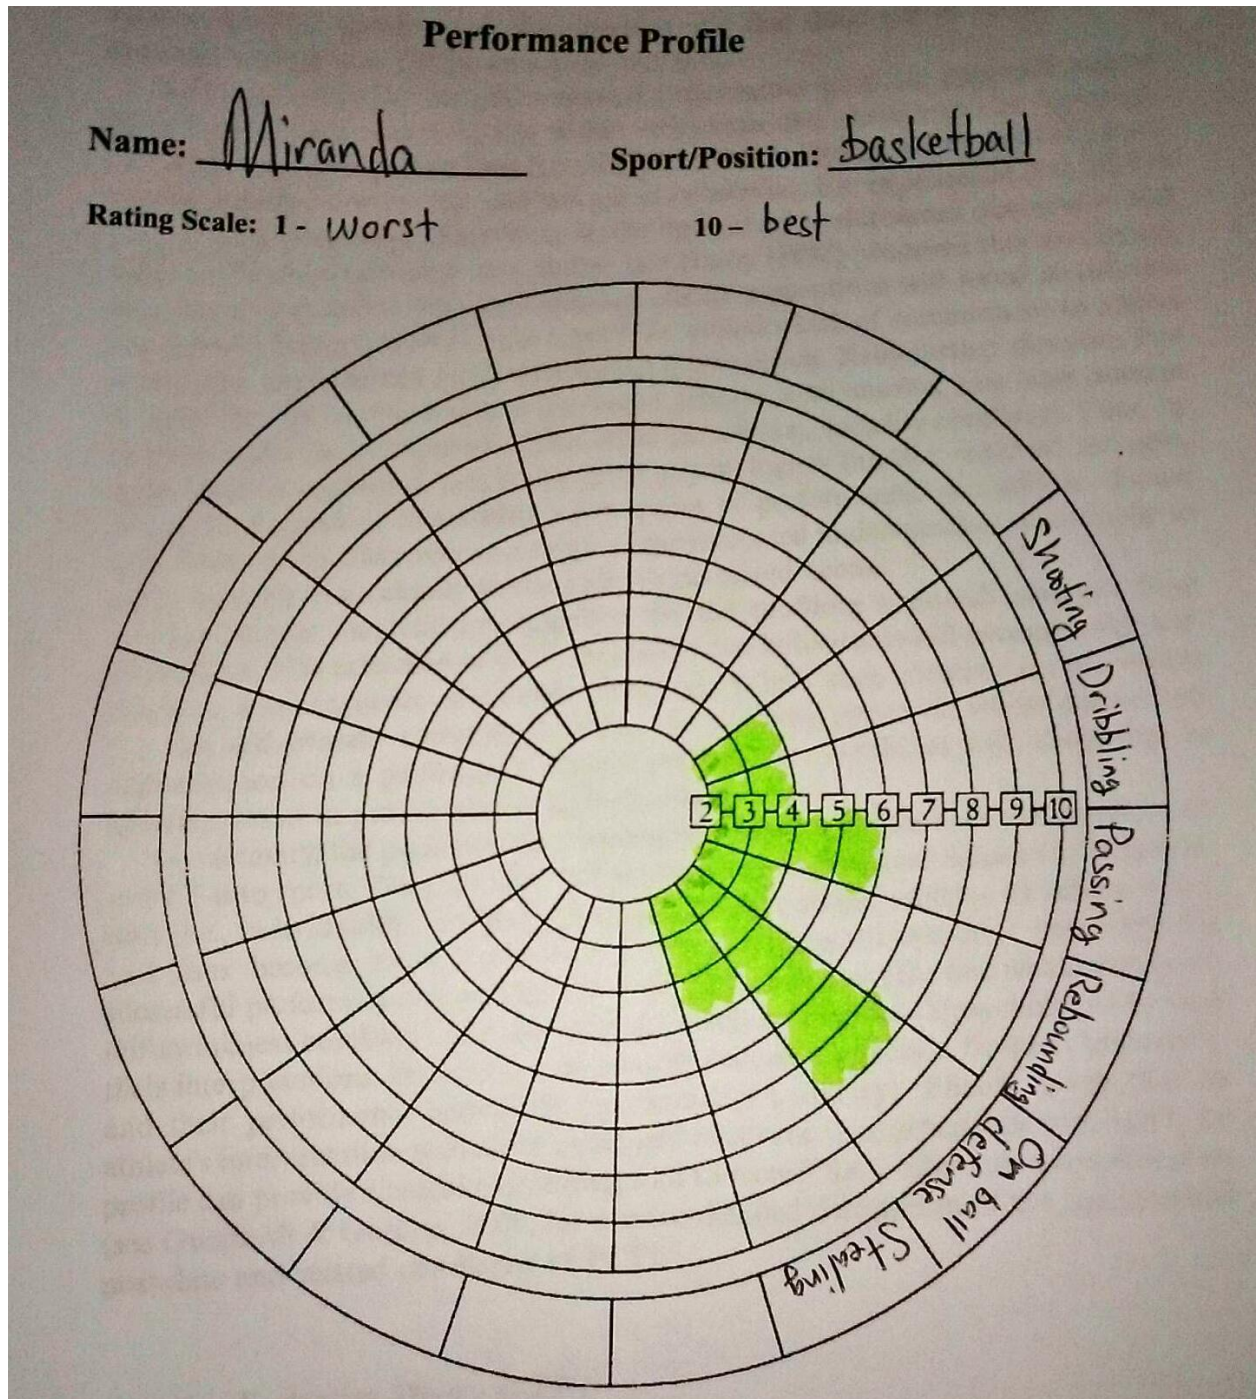 Performance Profile
Name: Miranda Sport/Position: basketball
Rating Scale: 1 - worst 10 – best
Shooting
Dribbling
2 3 4 5 6 7 8 9 10
Passing
Rebounding
On ball
defense
Stealing